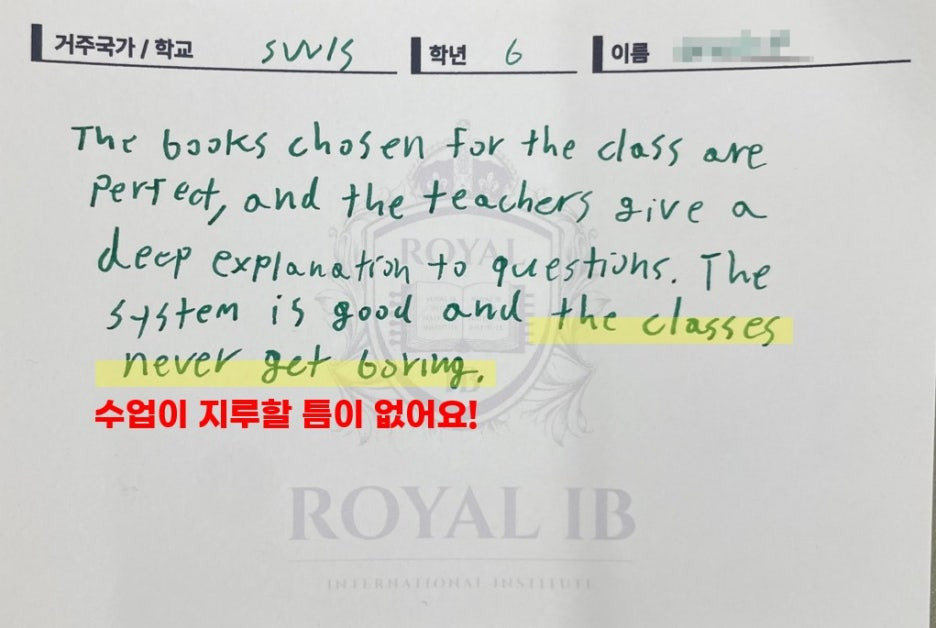 거주국가 / 학교 SWIS 학년 6 이름
The books chosen for the class are
perfect, and the teachers give a
deep explanation to questions. The
system is good and the classes
never get boring.
수업이 지루할 틈이 없어요!
ROYAL
IB
ROYAL IB
INTERNATIONAL INSTITUTE